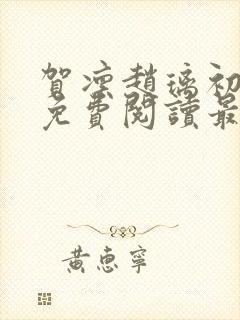 賀凜趙璃初
免費閱讀最
黃惠寧